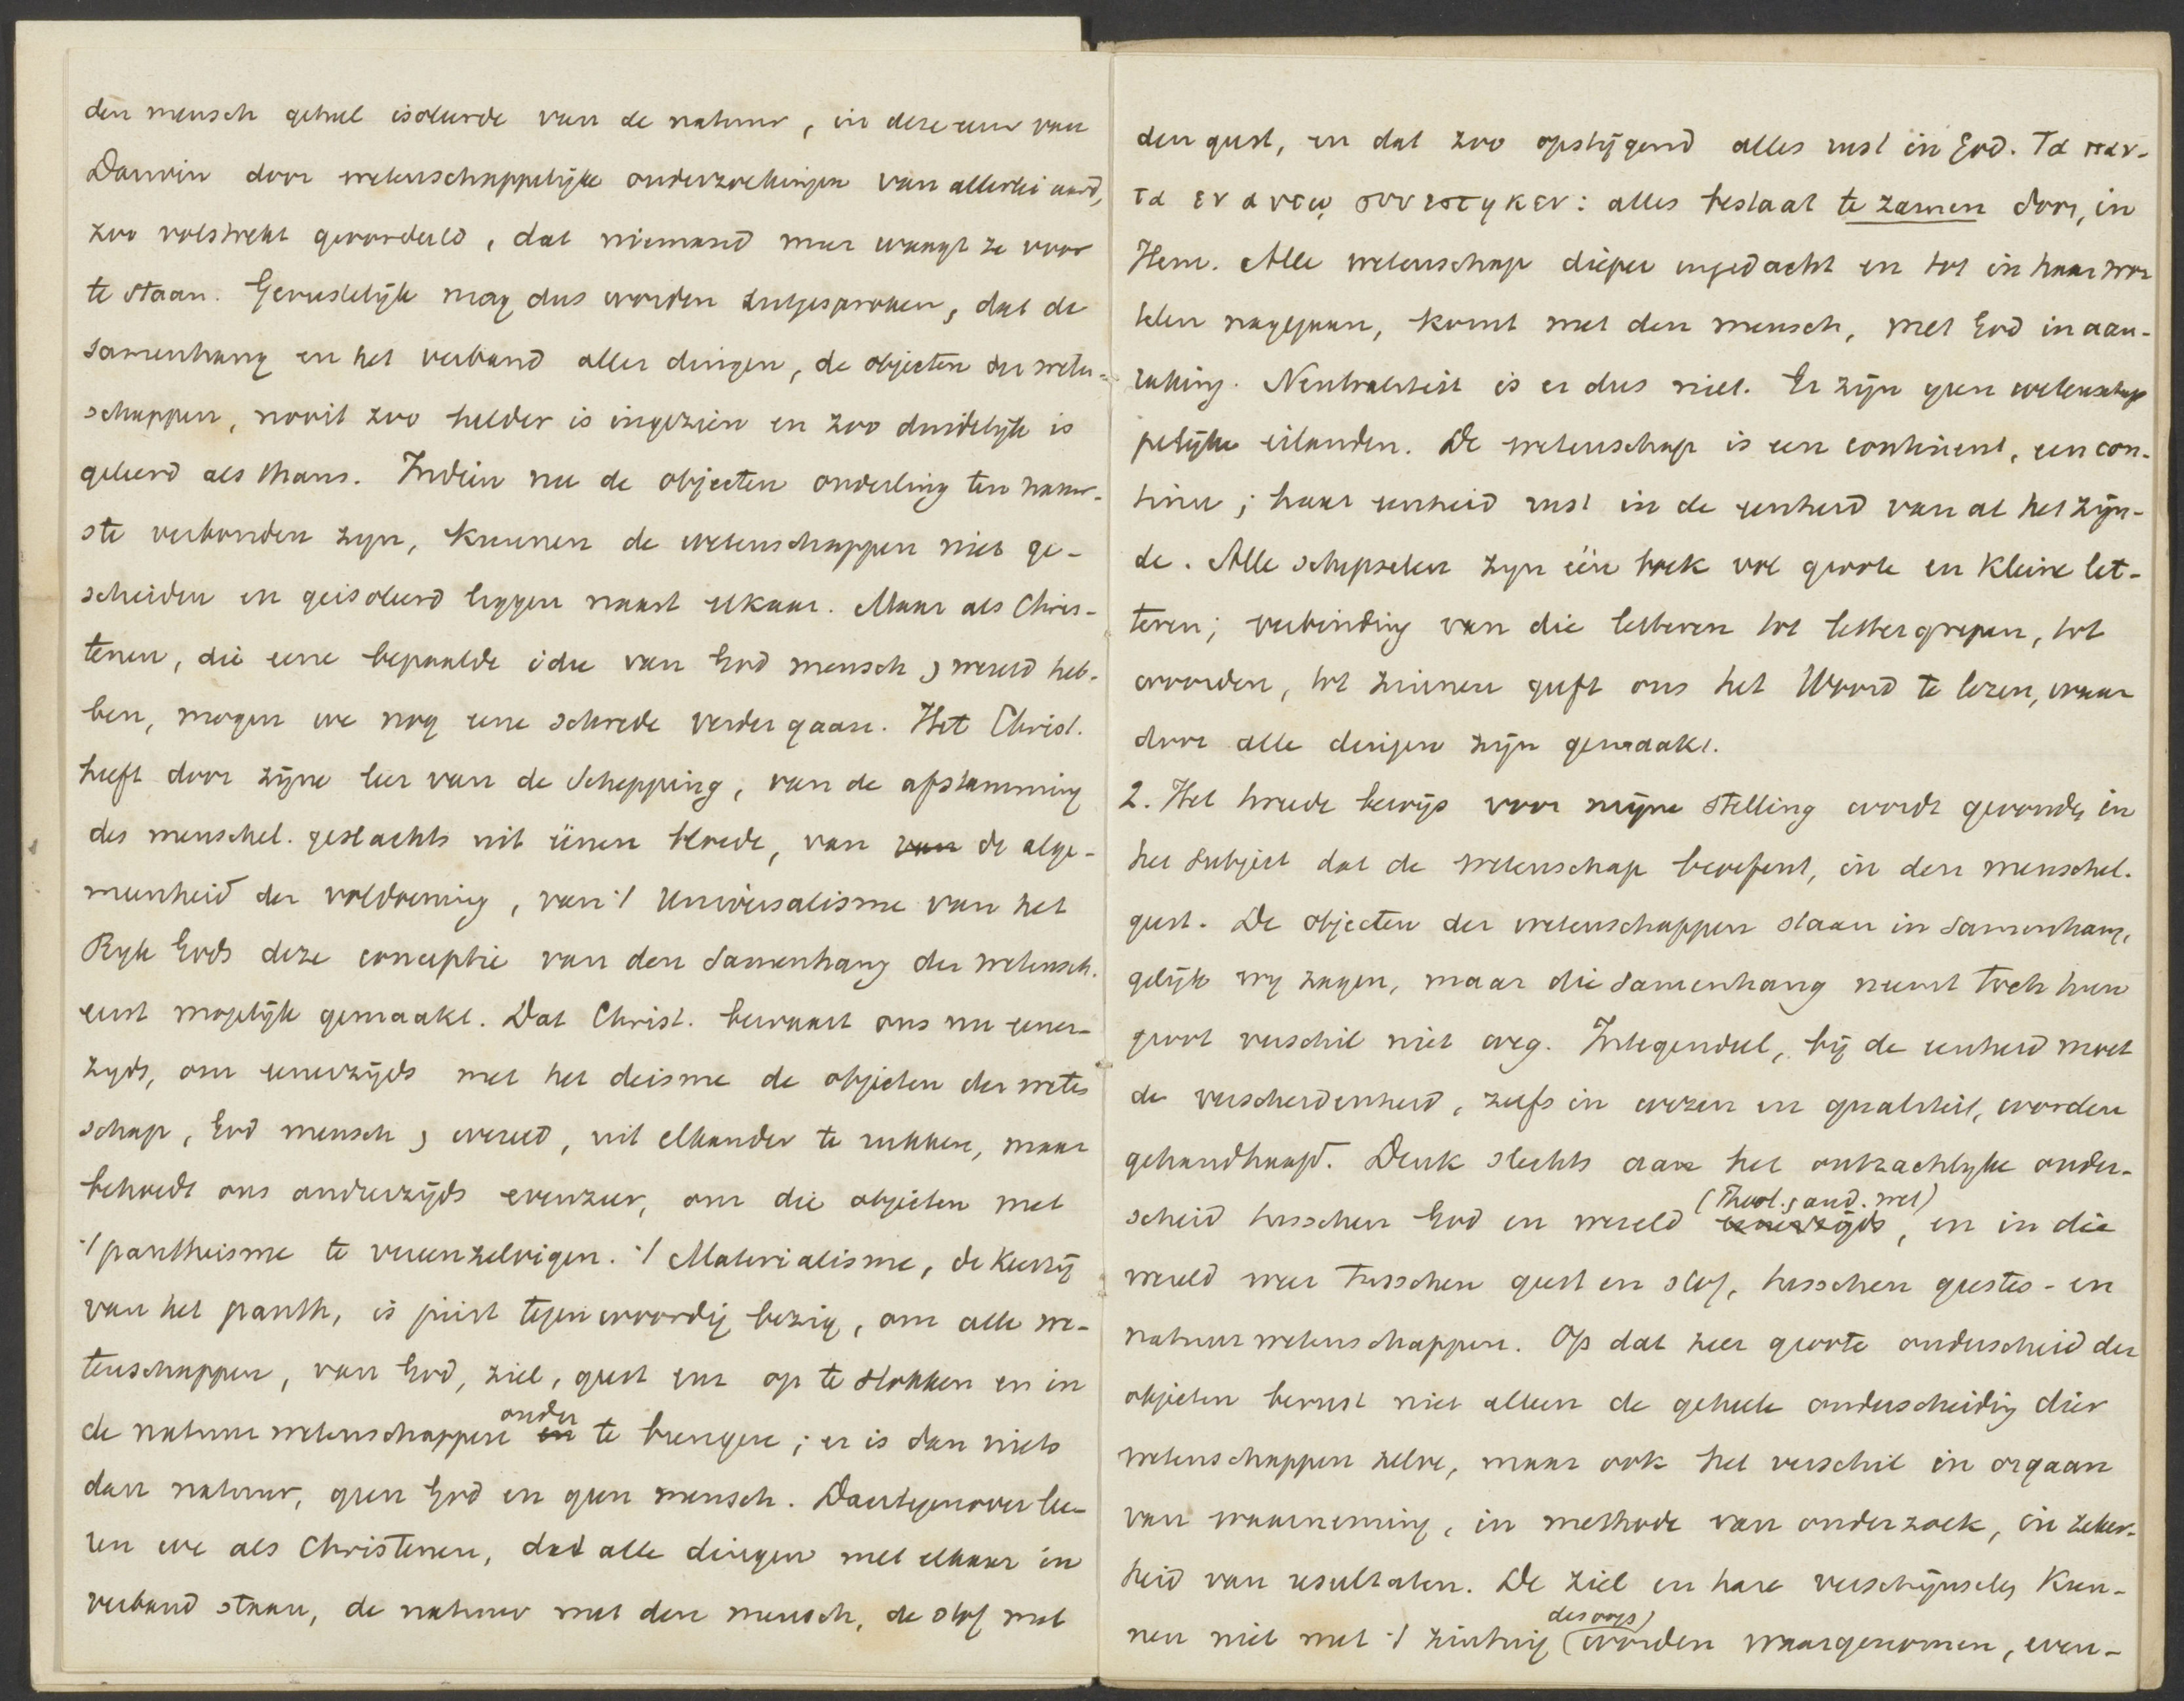 den mensch geheel isoleerde van de natuur, in deze eeuw van
Darwin door wetenschappelijke onderzoekingen van allerlei aard,
zoo volstrekt geoordeeld, dat niemand meer waagt ze voor
te staan. Gerustelijk mag dus worden uitgesproken, dat de
samenhang en het verband aller dingen, de objecten der weten-
schappen, nooit zoo helder is ingezien en zoo duidelijk is
geleerd als thans. Indien nu de objecten onderling ten nauw-
ste verbonden zyn, kunnen de wetenschappen niet ge-
scheiden en geisoleerd liggen naast elkaar. Maar als Chris-
tenen, die eene bepaalde idee van God mensch & wereld heb-
ben, mogen we nog eene schrede verder gaan. Het Christ.
heeft door zijne leer van de Schepping, van de afstamming
des menschel. geslachts uit éénen bloede, van van de alge-
meenheid der voldoening, van 't Universalisme van het
Ryk Gods deze conceptie van den samenhang der wetensch.
eerst mogelijk gemaakt. Dat Christ. bewaart ons nu eener-
zyds, om eenerzijds met het deisme de objecten der weten
schap, God mensch & wereld, uit elkander te rukken, maar
behoedt ons anderzijds evenzeer, om die objecten met
't pantheisme te vereenzelvigen. 't Materialisme, de keerzij
van het panth, is juist tegenwoordig bezig, om alle we-
tenschappen, van God, ziel, geest enz op te slokken en in
de natuurwetenschappen en onder te brengen; er is dan niets
dan natuur, geen God en geen mensch. Daartegenover lee-
ren we als Christenen, dat alle dingen met elkaar in
verband staan, de natuur met den mensch, de stof met
den geest, en dat zoo opstijgend alles rust in God. Τα παν-
τα εν αυτῳ συνεστηκεν: alles bestaat te zamen door, in
Hem. Alle wetenschap dieper ingedacht en tot in haar wor
telen nagegaan, komt met den mensch, met God in aan-
raking. Neutraliteit is er dus niet. Er zijn geen wetenschap
pelijke eilanden. De wetenschap is een continent, een con-
tinu; haar eenheid rust in de eenheid van al het zijn-
de. Alle schepselen zyn één boek vol groote en kleine let-
teren; verbinding van die letteren tot lettergrepen, tot
woorden, tot zinnen geeft ons het Woord te lezen, waar
door alle dingen zijn gemaakt.
2. Het tweede bewijs voor mijne stelling wordt gevonden in
het subject dat de wetenschap beoefent, in den menschel.
geest. De objecten der wetenschappen staan in samenhang,
gelijk wy zagen, maar die samenhang neemt toch hun
groot verschil niet weg. Integendeel, bij de eenheid moet
de verscheidenheid, zelfs in wezen en qualiteit, worden
gehandhaafd. Denk slechts aan het ontzachlyke onder-
scheid tusschen God en wereld eenerzijds (Theol. & and. wet), en in die
wereld weer tusschen geest en stof, tusschen geestes- en
natuurwetenschappen. Op dat zeer groote onderscheid der
objecten berust niet alleen de geheele onderscheiding dier
wetenschappen zelve, maar ook het verschil in orgaan
van waarneming, in methode van onderzoek, in zeker-
heid van resultaten. De ziel en hare verschijnselen kun-
nen niet met 't zintuig (des oogs) worden waargenomen, even-